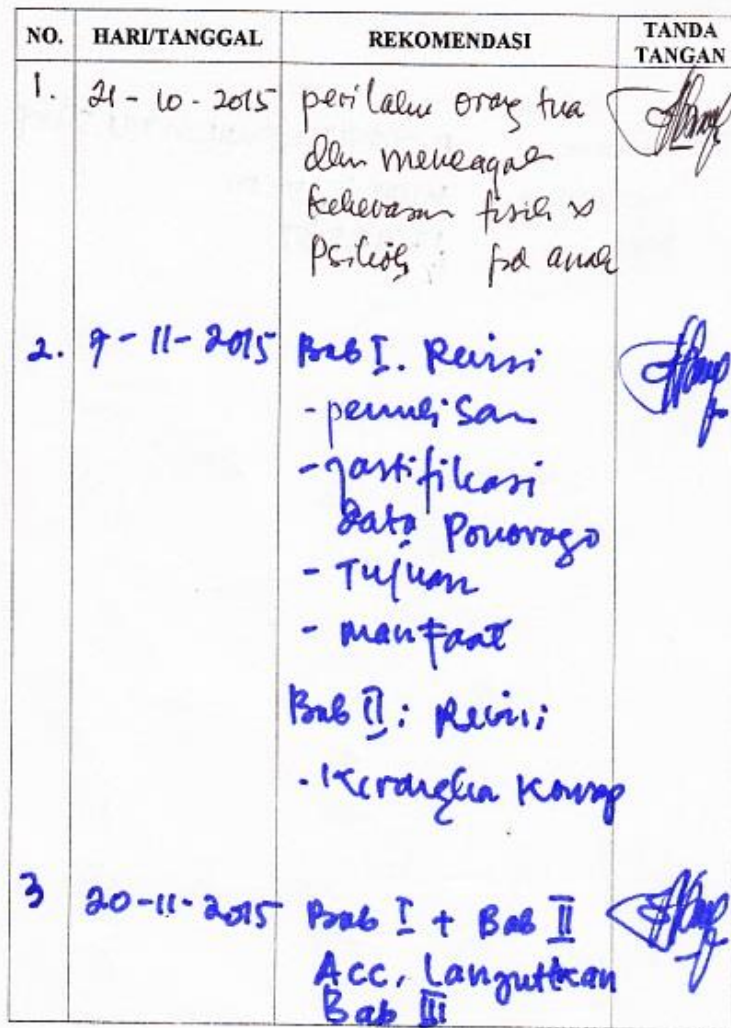 NO. HARI/TANGGAL REKOMENDASI TANDA TANGAN
1. 21-10-2015 perilaku orang tua
dlm mencegah
kekerasan fisik &
Psikois pd anak
2. 9-11-2015 Bab I. Revisi
- penulisan
- jastifikasi
data Ponorogo
- Tujuan
- manfaat
Bab II: Revisi:
- Kerangka Konsep
3 20-11-2015 Bab I + Bab II
Acc, Langutkan
Bab III